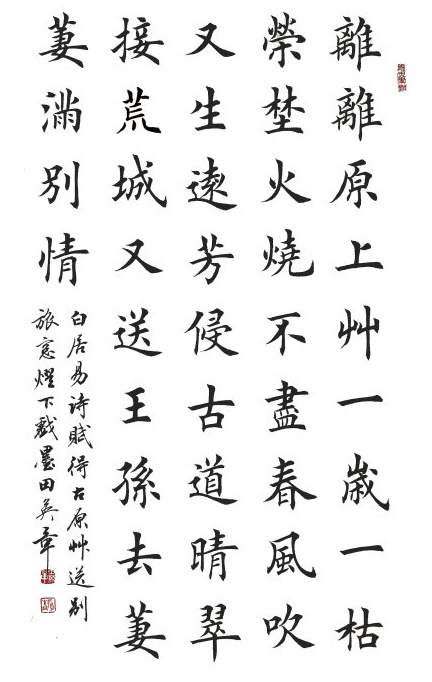 離離原上艸一歲一枯
榮埜火燒不盡春風吹
又生遠芳侵古道晴翠
接荒城又送王孫去萋
萋滿别情
白居易诗賦得古原艸送别
旅窓燈下戲墨田英章